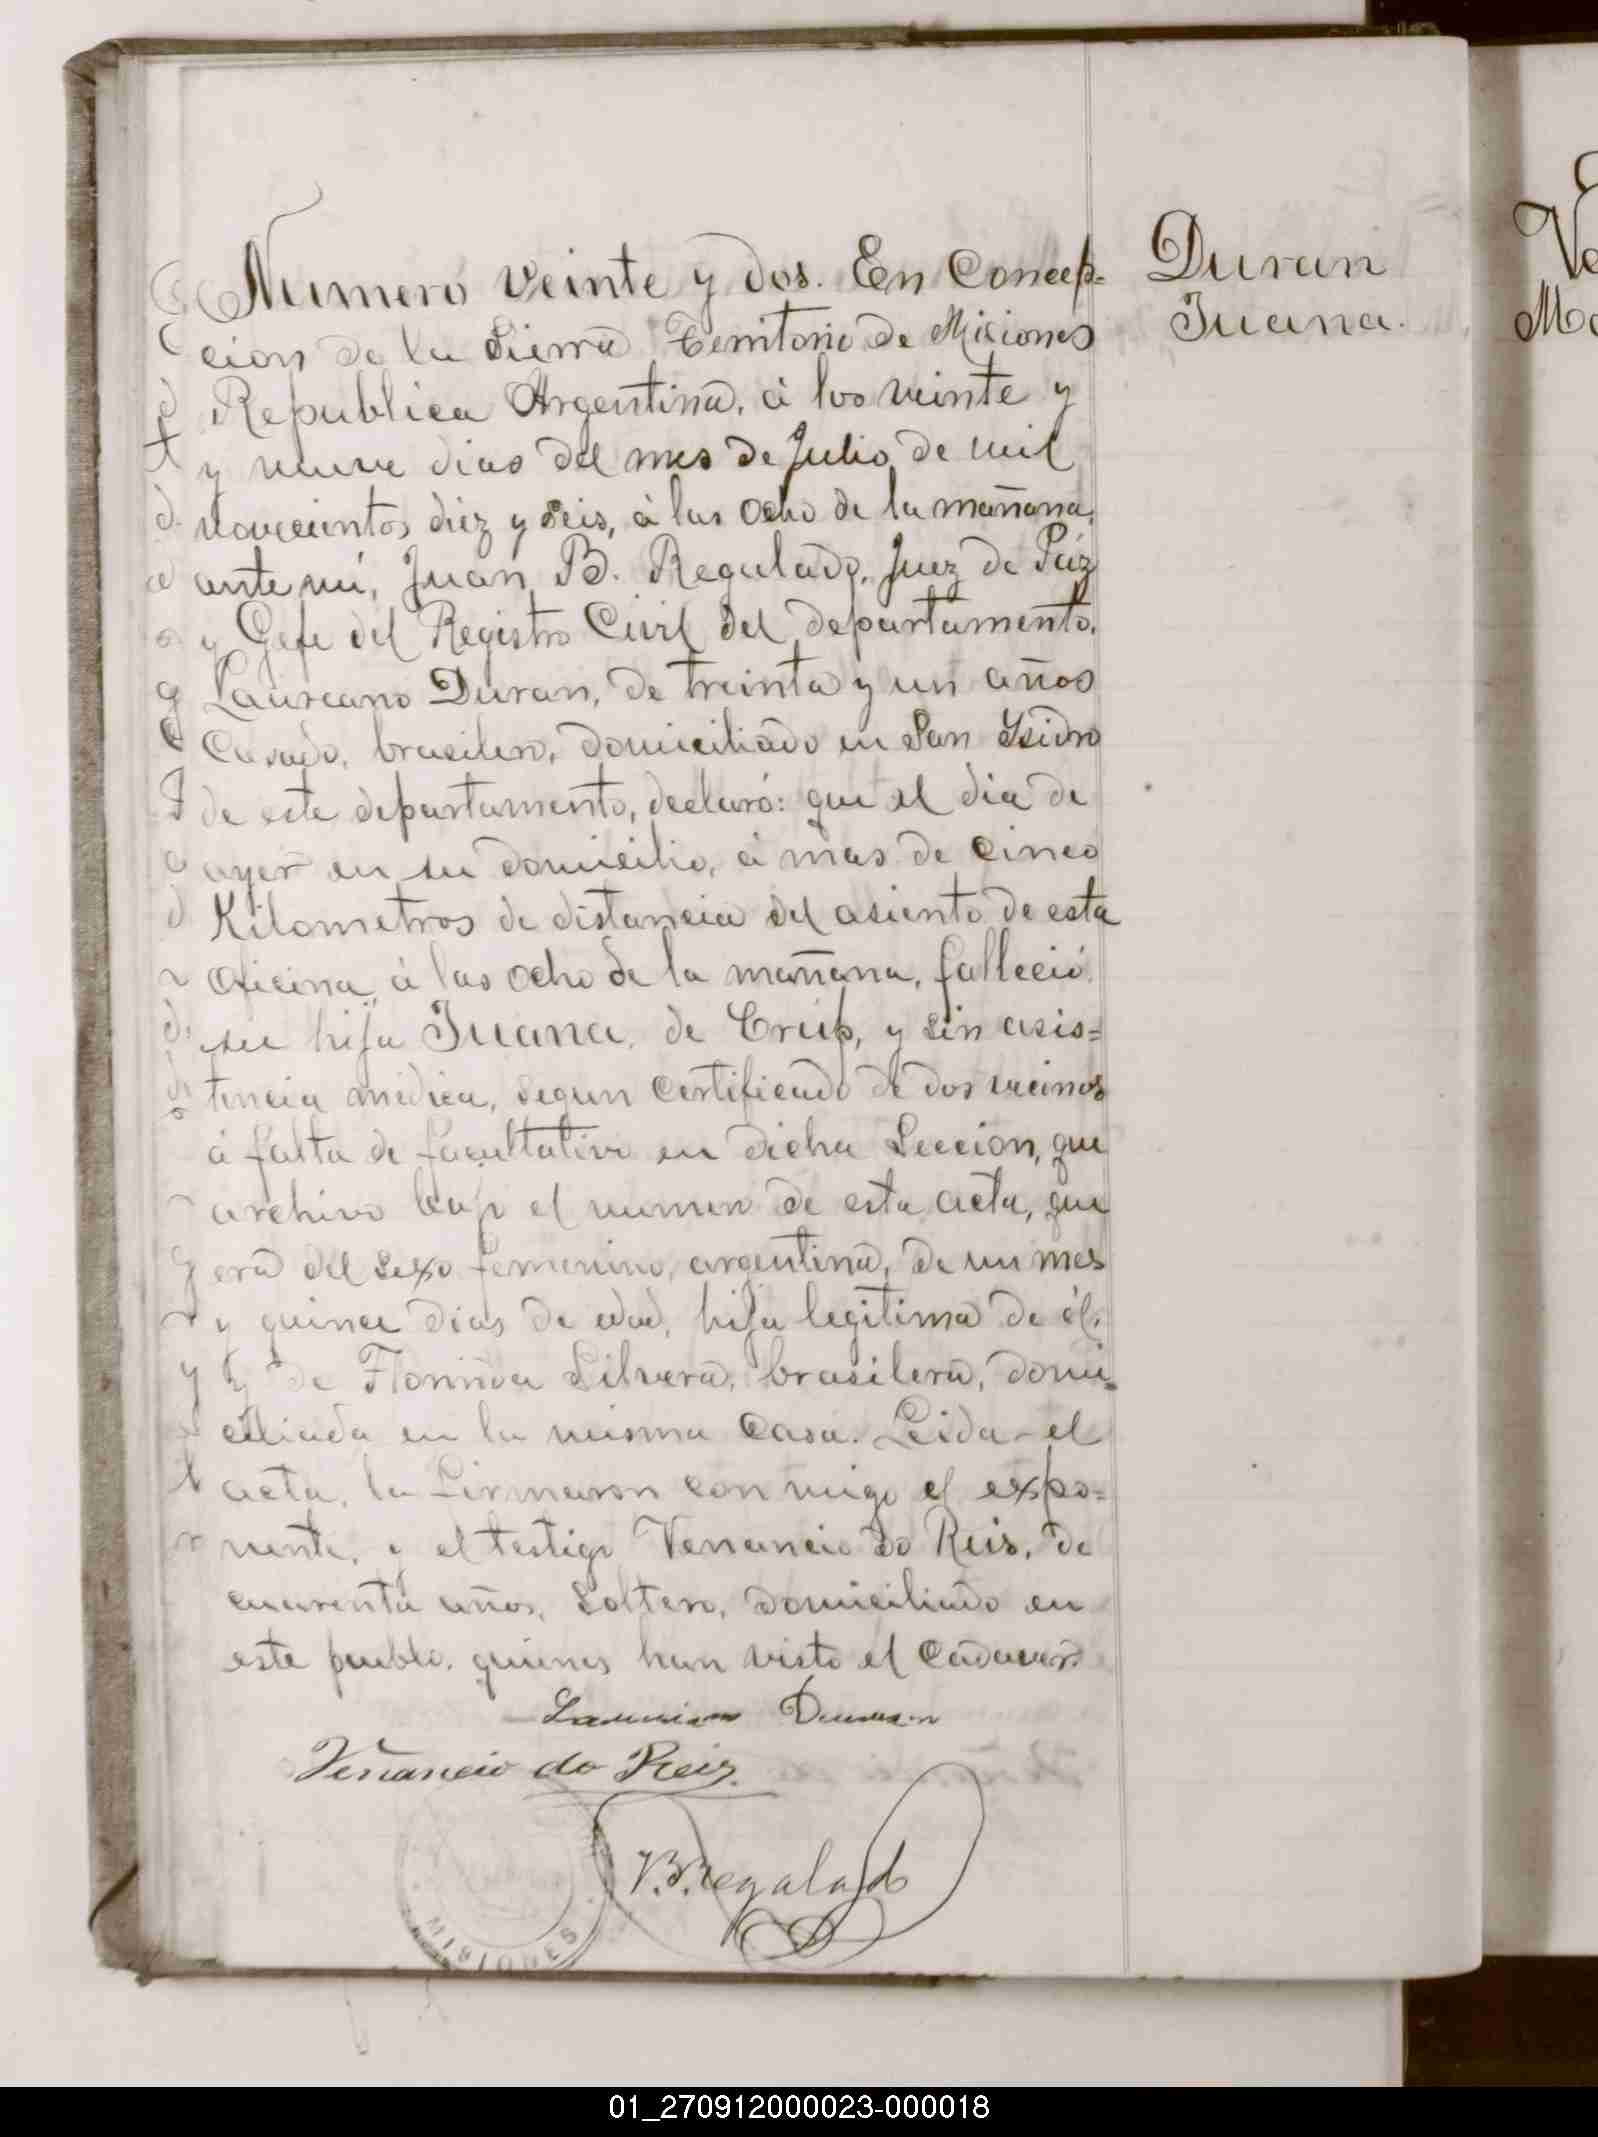 Numero veinte y dos. En Concep-
cion de la Sierra Territorio de Misiones
Republica Argentina, á los veinte y
y nueve dias del mes de Julio de mil
novecientos diez y seis, á las ocho de la mañana,
ante mí, Juan B. Regalado, Juez de Paz
y Gefe del Registro Civil del departamento,
Laureano Duran, de treinta y un años
Casado, brasilero, domiciliado en San Ysidro
de este departamento, declaró: que el dia de
ayer en su domicilio, á mas de cinco
Kilometros de distancia del asiento de esta
oficina, á las ocho de la mañana, falleció
su hija Juana, de Crup, y sin asis=
tencia medica, segun Certificado de dos vecinos
á falta de facultativo en dicha Seccion, que
archivo bajo el numero de esta acta, que
era del sexo femenino, argentina, de un mes
y quince dias de edad, hija legitima de él,
y de Florinda Silvera, brasilera, domi=
ciliada en la misma Casa. Leida el
acta, la firmaron conmigo el expo=
nente, y el testigo Venancio do Reis, de
cuarenta años, Soltero, domiciliado en
este pueblo, quienes han visto el Cadaver.
Laureano Duran
Venancio do Reis
J. B. Regalado
MISIONES
Duran
Juana.
Ve
Ma
01_270912000023-000018